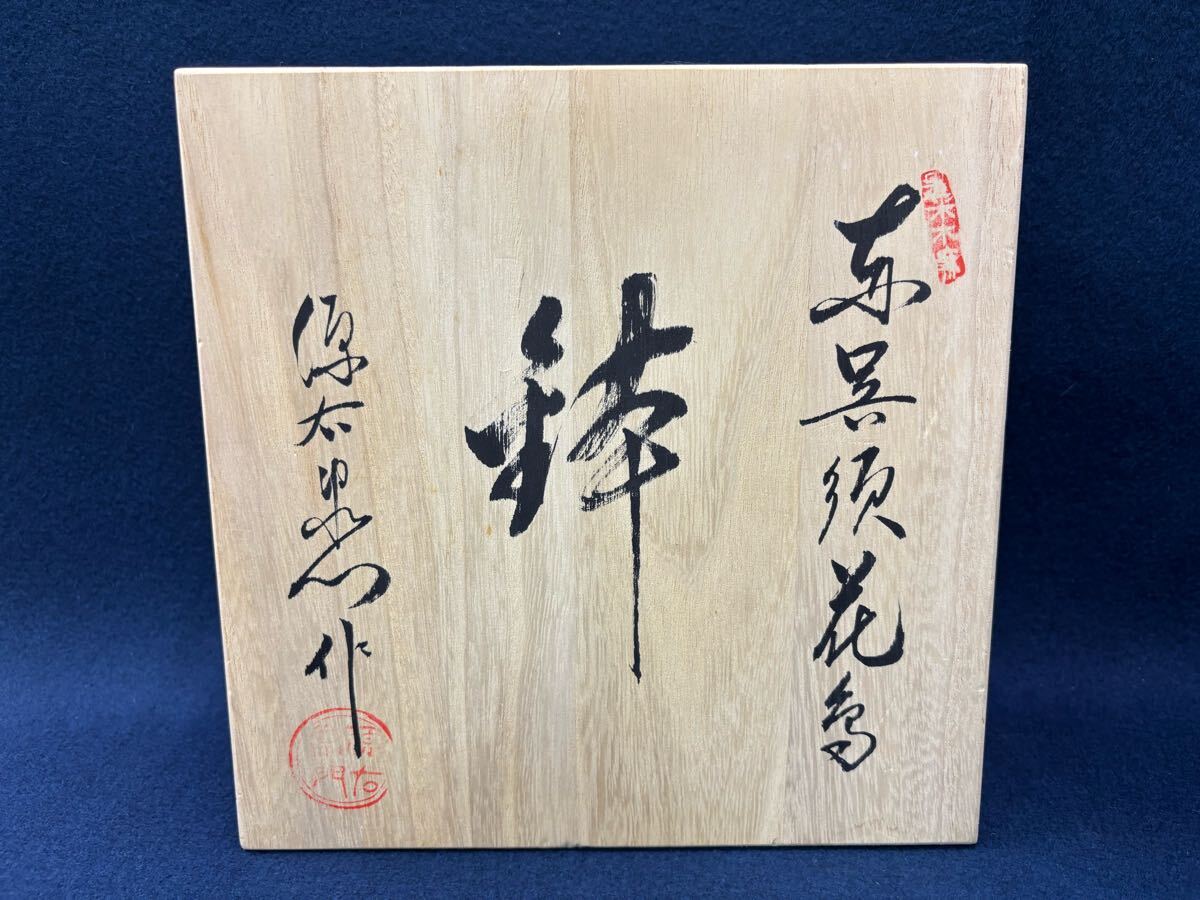 赤呉須花鳥
鉢
源右衛門作